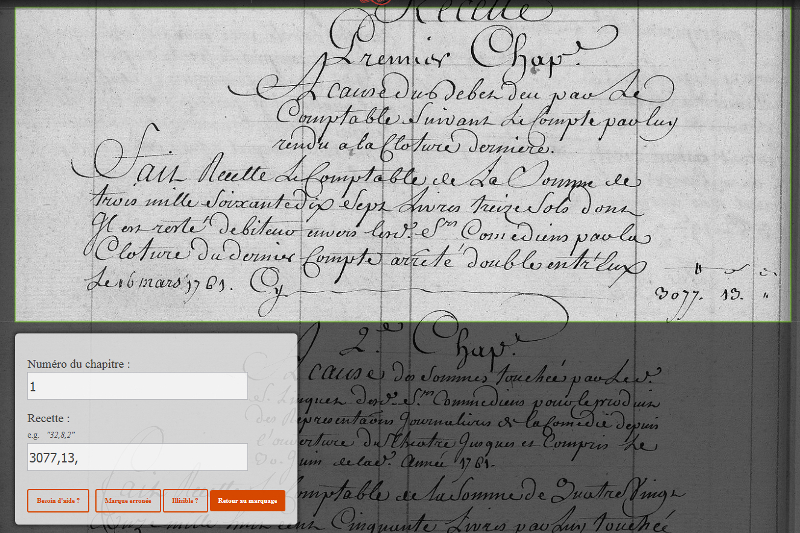 Recette
Premier Chap.e
A cause du debet deu par Le
Comptable Suivant Le Compte par luy
rendu a la Cloture derniere.
Fait Recette Le Comptable de La Somme de
trois mille Soixante dix Sept Livres treize Sols dont
Il est resté debiteur envers les Srs Comediens par la
Cloture Du dernier Compte arreté double entr'eux
Le 16 mars 1761. Cy
3077. 13. "
2.e Chap.e
A cause des Sommes touchées par Le
Comediens pour le produit
des Representations Journalieres de la Comedie depuis
l'ouverture du Theatre Jusques et Compris Le
30. Juin de la Année 1761.
Fait Comptable de la Somme de Quatre Vingt
Onze mille huit cent Cinquante Livres par Luy touchée
Numéro du chapitre :
1
Recette :
e.g. "32,8,2"
3077,13,
Besoin d'aide ?
Marque erronée
Illisible ?
Retour au marquage